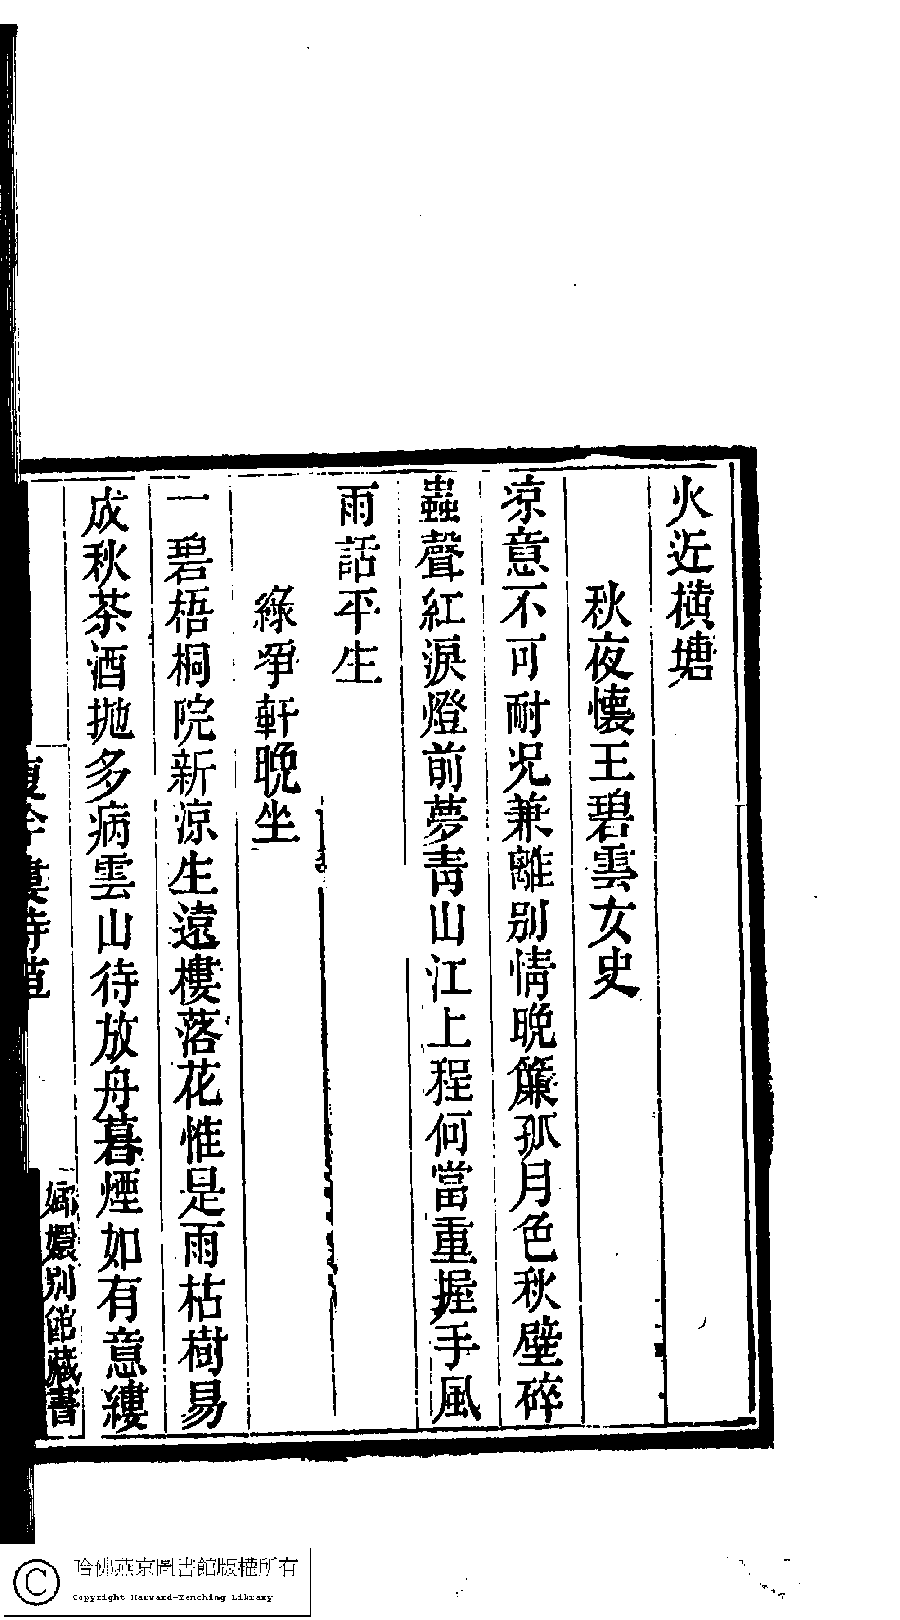 火近橫塘
秋夜懷王碧雲女史
凉意不可耐况兼離别情晚簾孤月色秋壁碎
蟲聲紅淚燈前夢青山江上程何當重握手風
雨話平生
綠爭軒晚坐
一碧梧桐院新涼生遠樓落花惟是雨枯樹易
成秋茶酒抛多病雲山待放舟暮煙如有意縷
嫏嬛别館藏書
哈佛燕京圖書館版權所有
Copyright Harvard-Yenching Library